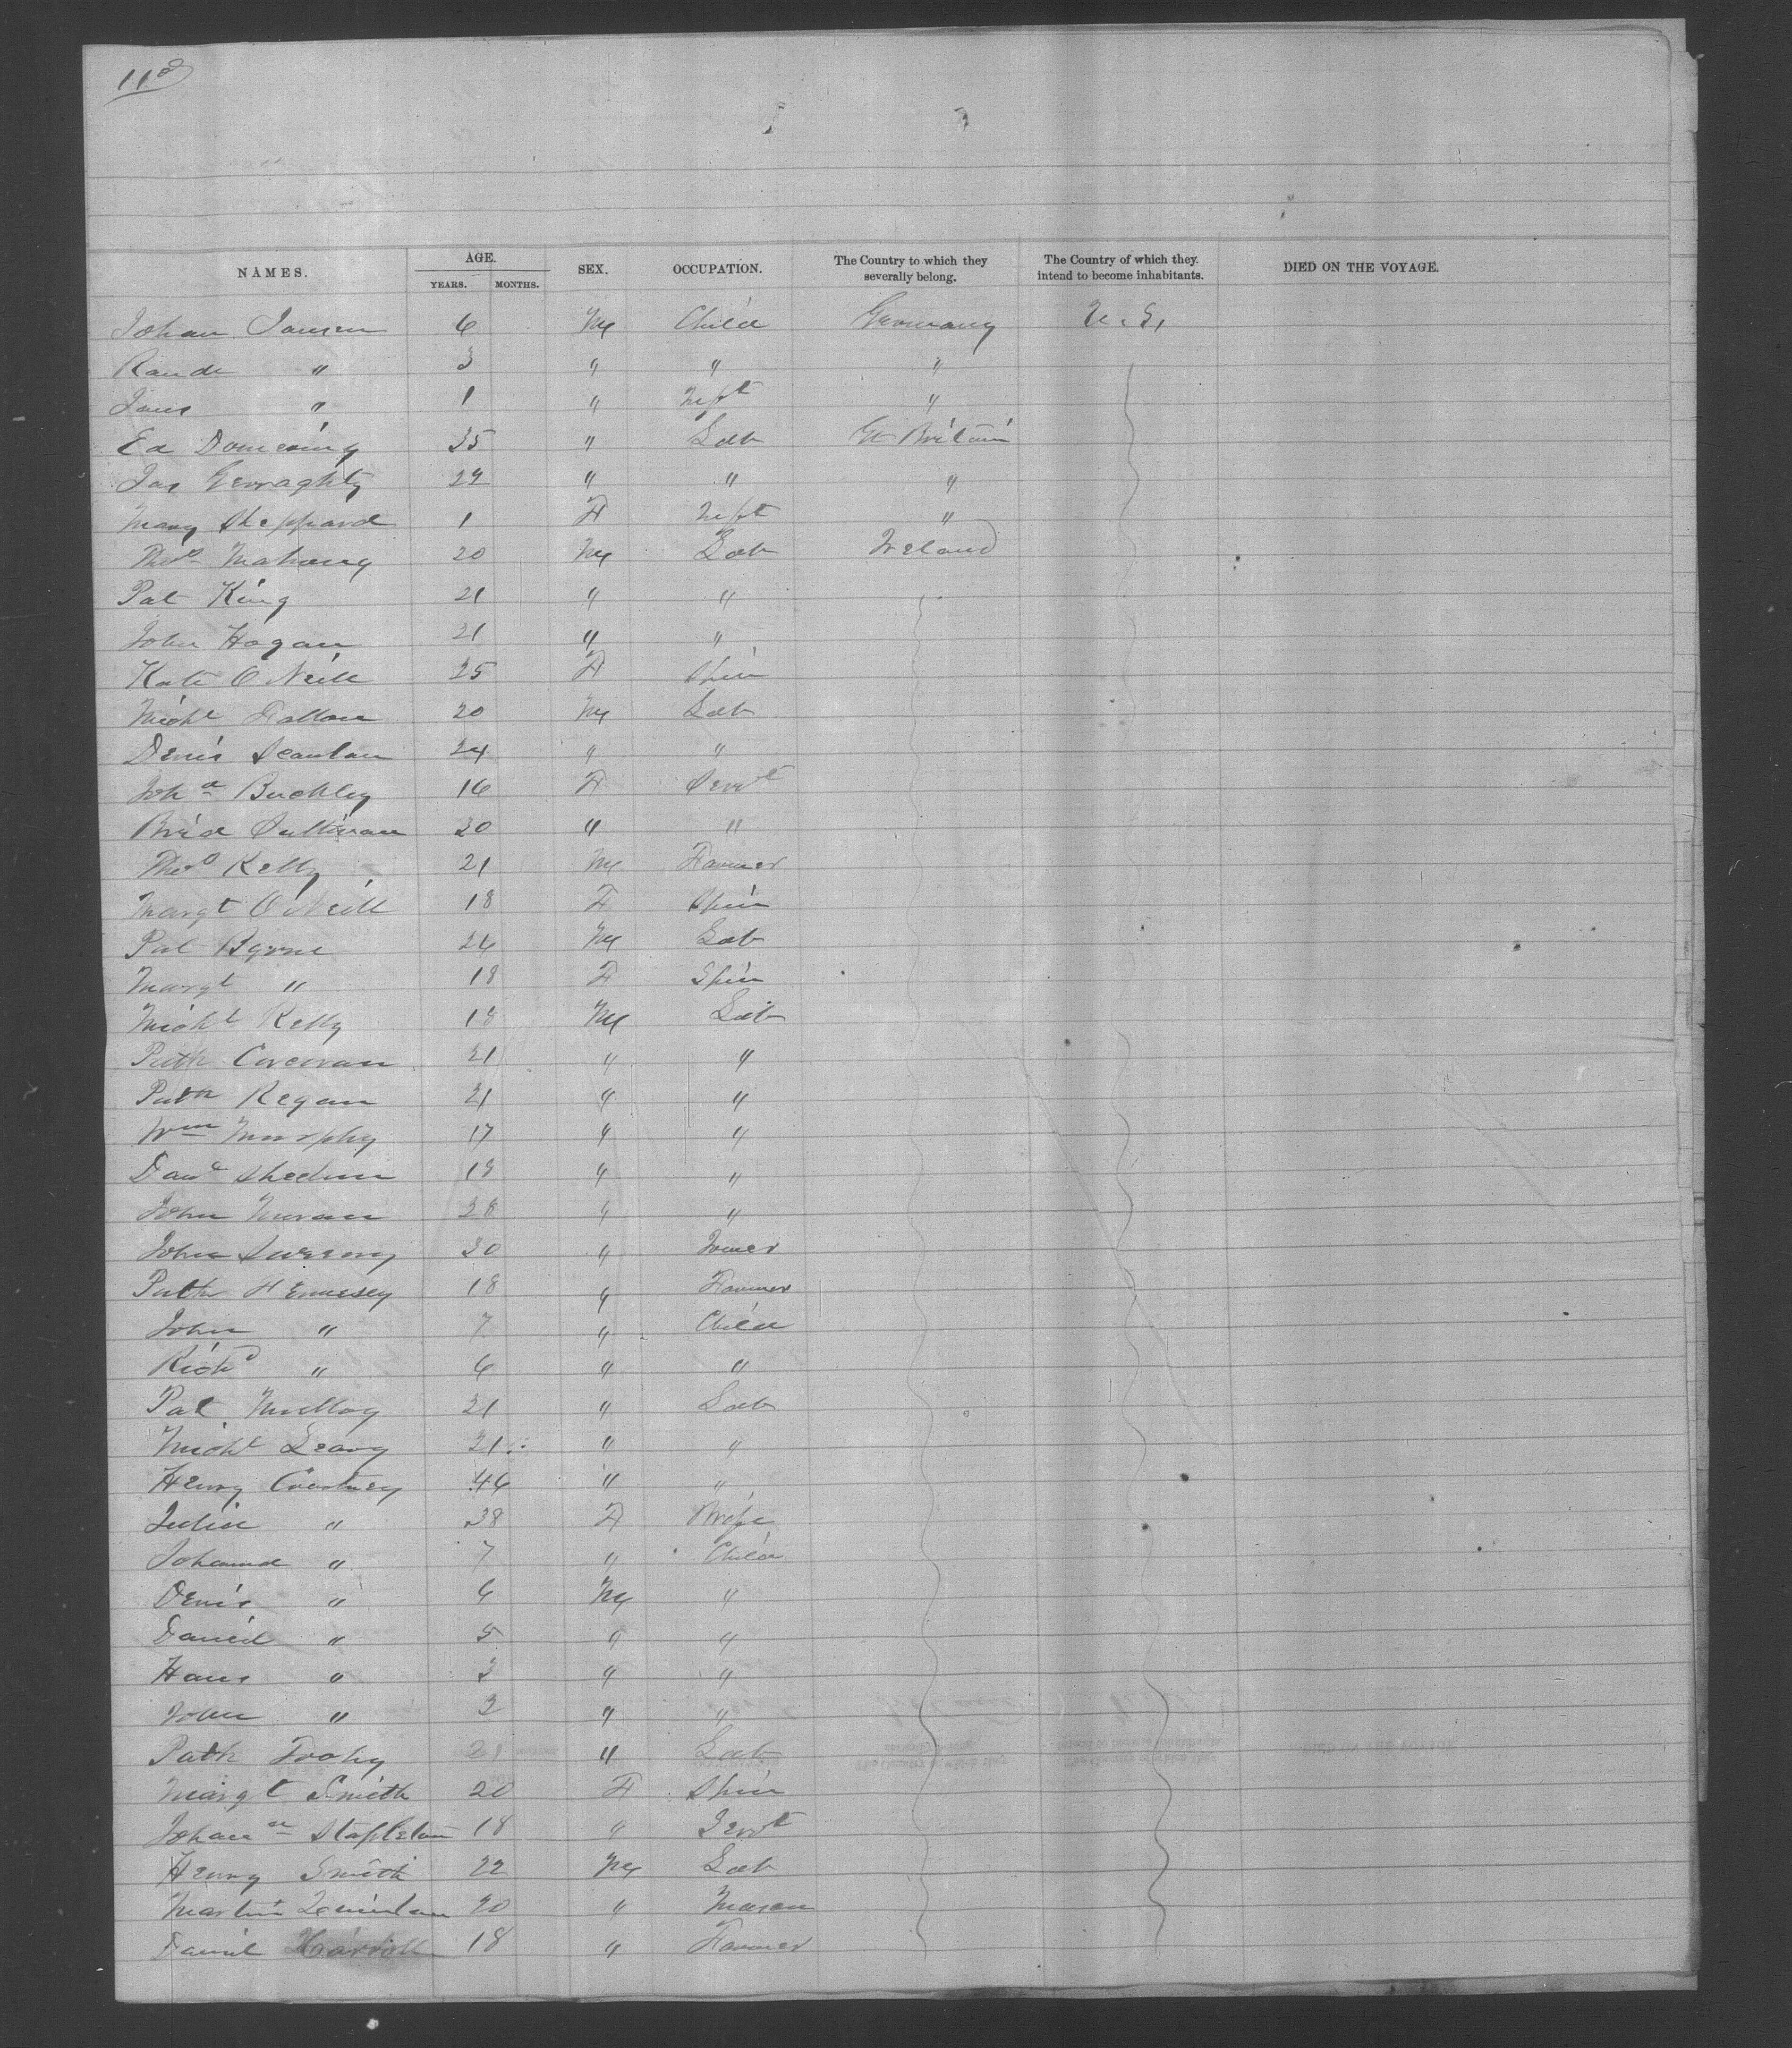 118
NAMES. AGE. YEARS. MONTHS. SEX. OCCUPATION. The Country to which they severally belong. The Country of which they intend to become inhabitants. DIED ON THE VOYAGE.
Johan Jansen 6 M Child Germany U.S.
3 " " "
Jans " 1 " Inft "
Ed 35 " Lab Gt Britain
Jas Gerraghty 22 " " "
Mary Sheppard 1 F Inft "
Thos Mahony 20 M Lab Ireland
Pat King 21 " "
John Hogan 21 " "
Kate O'Neill 25 F Spin
Michl Fallon 20 M Lab
Denis Scanlan 24 " "
Joha Buckley 16 F Servt
Brid Sullivan 20 " "
Thos Kelly 21 M Farmer
Margt O'Neill 18 F Spin
Pat Byrne 24 M Lab
Margt " 18 F Spin
Michl Kelly 18 M Lab
Patk Corcoran 21 " "
Patk Regan 21 " "
Wm Murphy 17 " "
Davd Sheehan 18 " "
John Moran 28 " "
John Sweeny 30 " Joiner
Patk Hennesey 18 " Farmer
John " 7 " Child
Richd " 6 " "
Pat Molloy 21 " Lab
Michl Leary 21 " "
Henry Courtney 46 " "
Julia " 38 F Wife
Johanna " 7 " Child
Denis " 6 M "
Daniel " 5 " "
Hans " 3 " "
John " 2 " "
Patk Foohy 21 " Lab
Margt Smith 20 F Spin
Johanna Stapleton 18 " Servt
Henry Smith 22 M Lab
Martin Quinlan 20 " Mason
Daniel 18 " Farmer